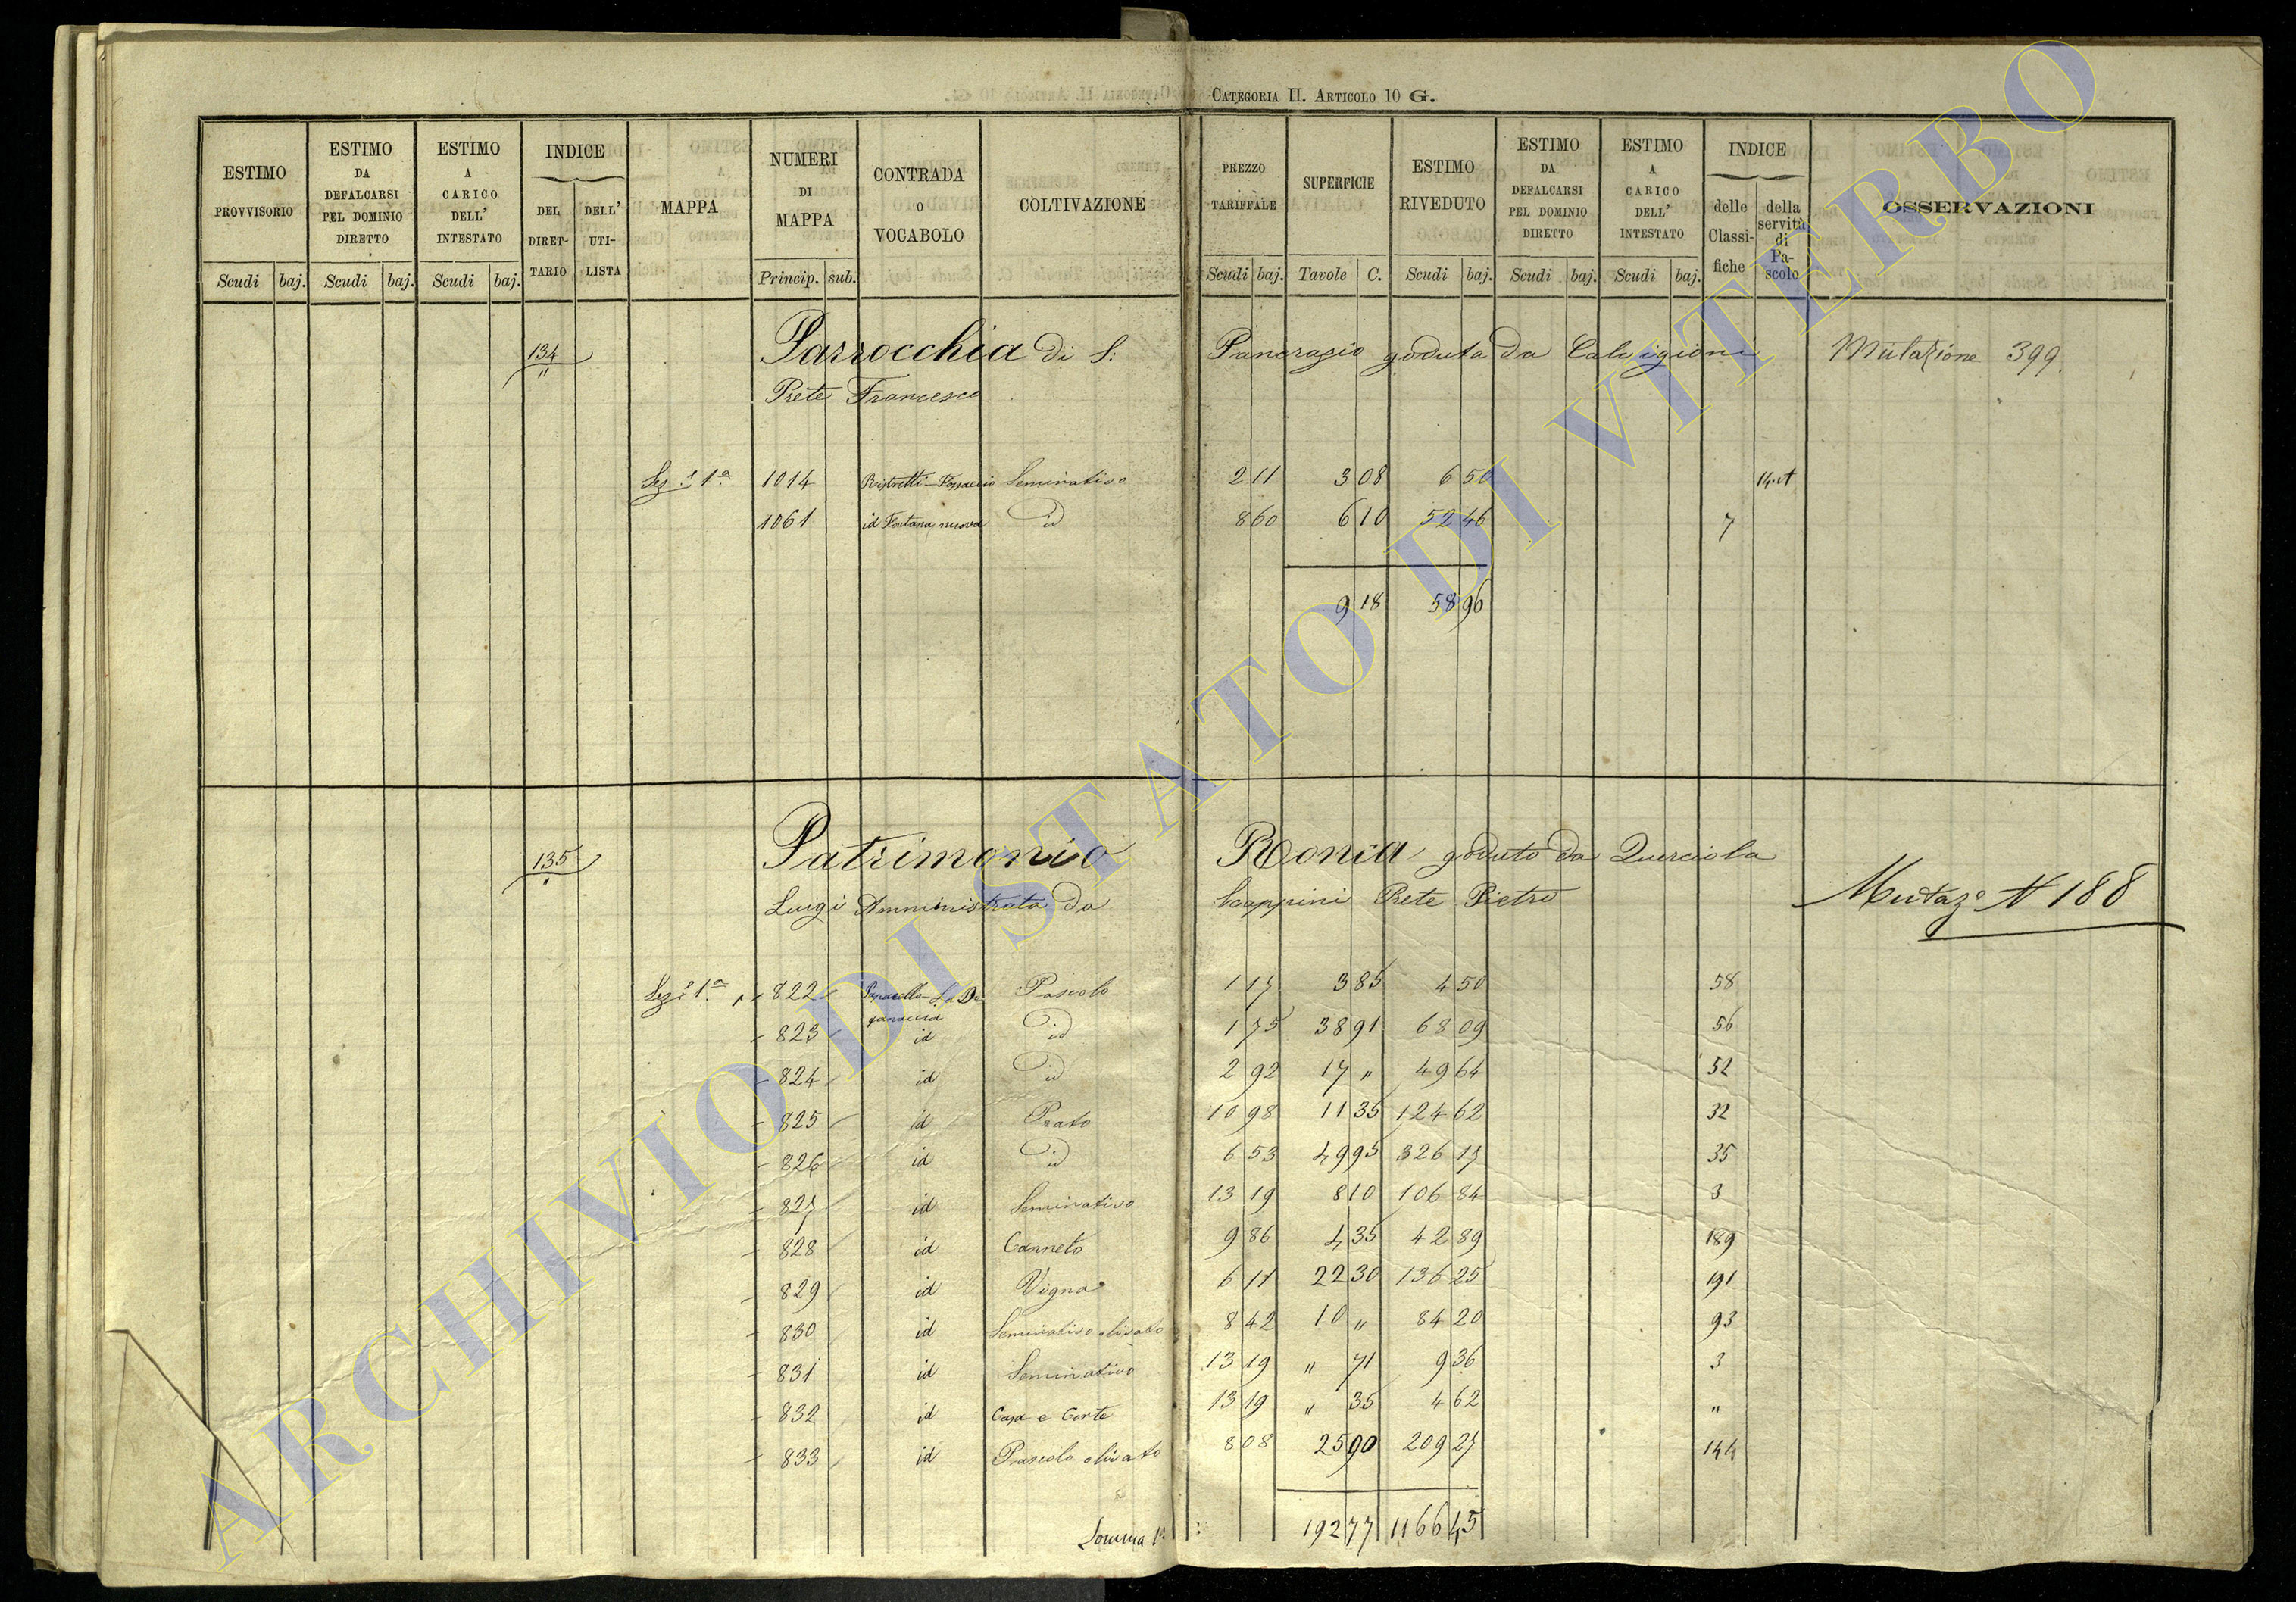 CATEGORIA II. ARTICOLO 10 G.
ESTIMO PROVVISORIO Scudi baj.
ESTIMO DA DEFALCARSI PEL DOMINIO DIRETTO Scudi baj.
ESTIMO A CARICO DELL' INTESTATO Scudi baj.
INDICE DEL DIRETTARIO DELL' UTILISTA
MAPPA
NUMERI DI MAPPA Princip. sub.
CONTRADA O VOCABOLO
COLTIVAZIONE
PREZZO TARIFFALE Scudi baj.
SUPERFICIE Tavole C.
ESTIMO RIVEDUTO Scudi baj.
ESTIMO DA DEFALCARSI PEL DOMINIO DIRETTO Scudi baj.
ESTIMO A CARICO DELL' INTESTATO Scudi baj.
INDICE delle Classifiche della servità di Pascolo
OSSERVAZIONI
134 Parrocchia di S. Pancrazio goduta da Calvigioni Mutazione 399.
Prete Francesco
Sez.e 1a 1014 Ristretti Seminativo 2 11 3 08 6 50
1061 id Fontana nuova id 8 60 6 10 52 46 7
9 18 58 96
135 Patrimonio Ronca goduto da Querciola
Luigi Amministrato da Scappini Prete Pietro Mutaz.e N 188
Sez.e 1a 822 Pascolo 1 17 3 85 4 50 58
823 id id 1 75 38 91 68 09 56
824 id id 2 92 17 " 49 64 52
825 id Prato 10 98 11 35 124 62 32
826 id id 6 53 49 95 326 17 35
827 id Seminativo 13 19 8 10 106 84 3
828 id Canneto 9 86 4 35 42 89 189
829 id Vigna 6 11 22 30 136 25 191
830 id Seminativo olivato 8 42 10 " 84 20 93
831 id Seminativo 13 19 " 71 9 36 3
832 id Casa e Corte 13 19 " 35 4 62 "
833 id Pascolo olivato 8 08 25 90 209 27 144
Somma 192 77 1166 45
ARCHIVIO DI STATO DI VITERBO